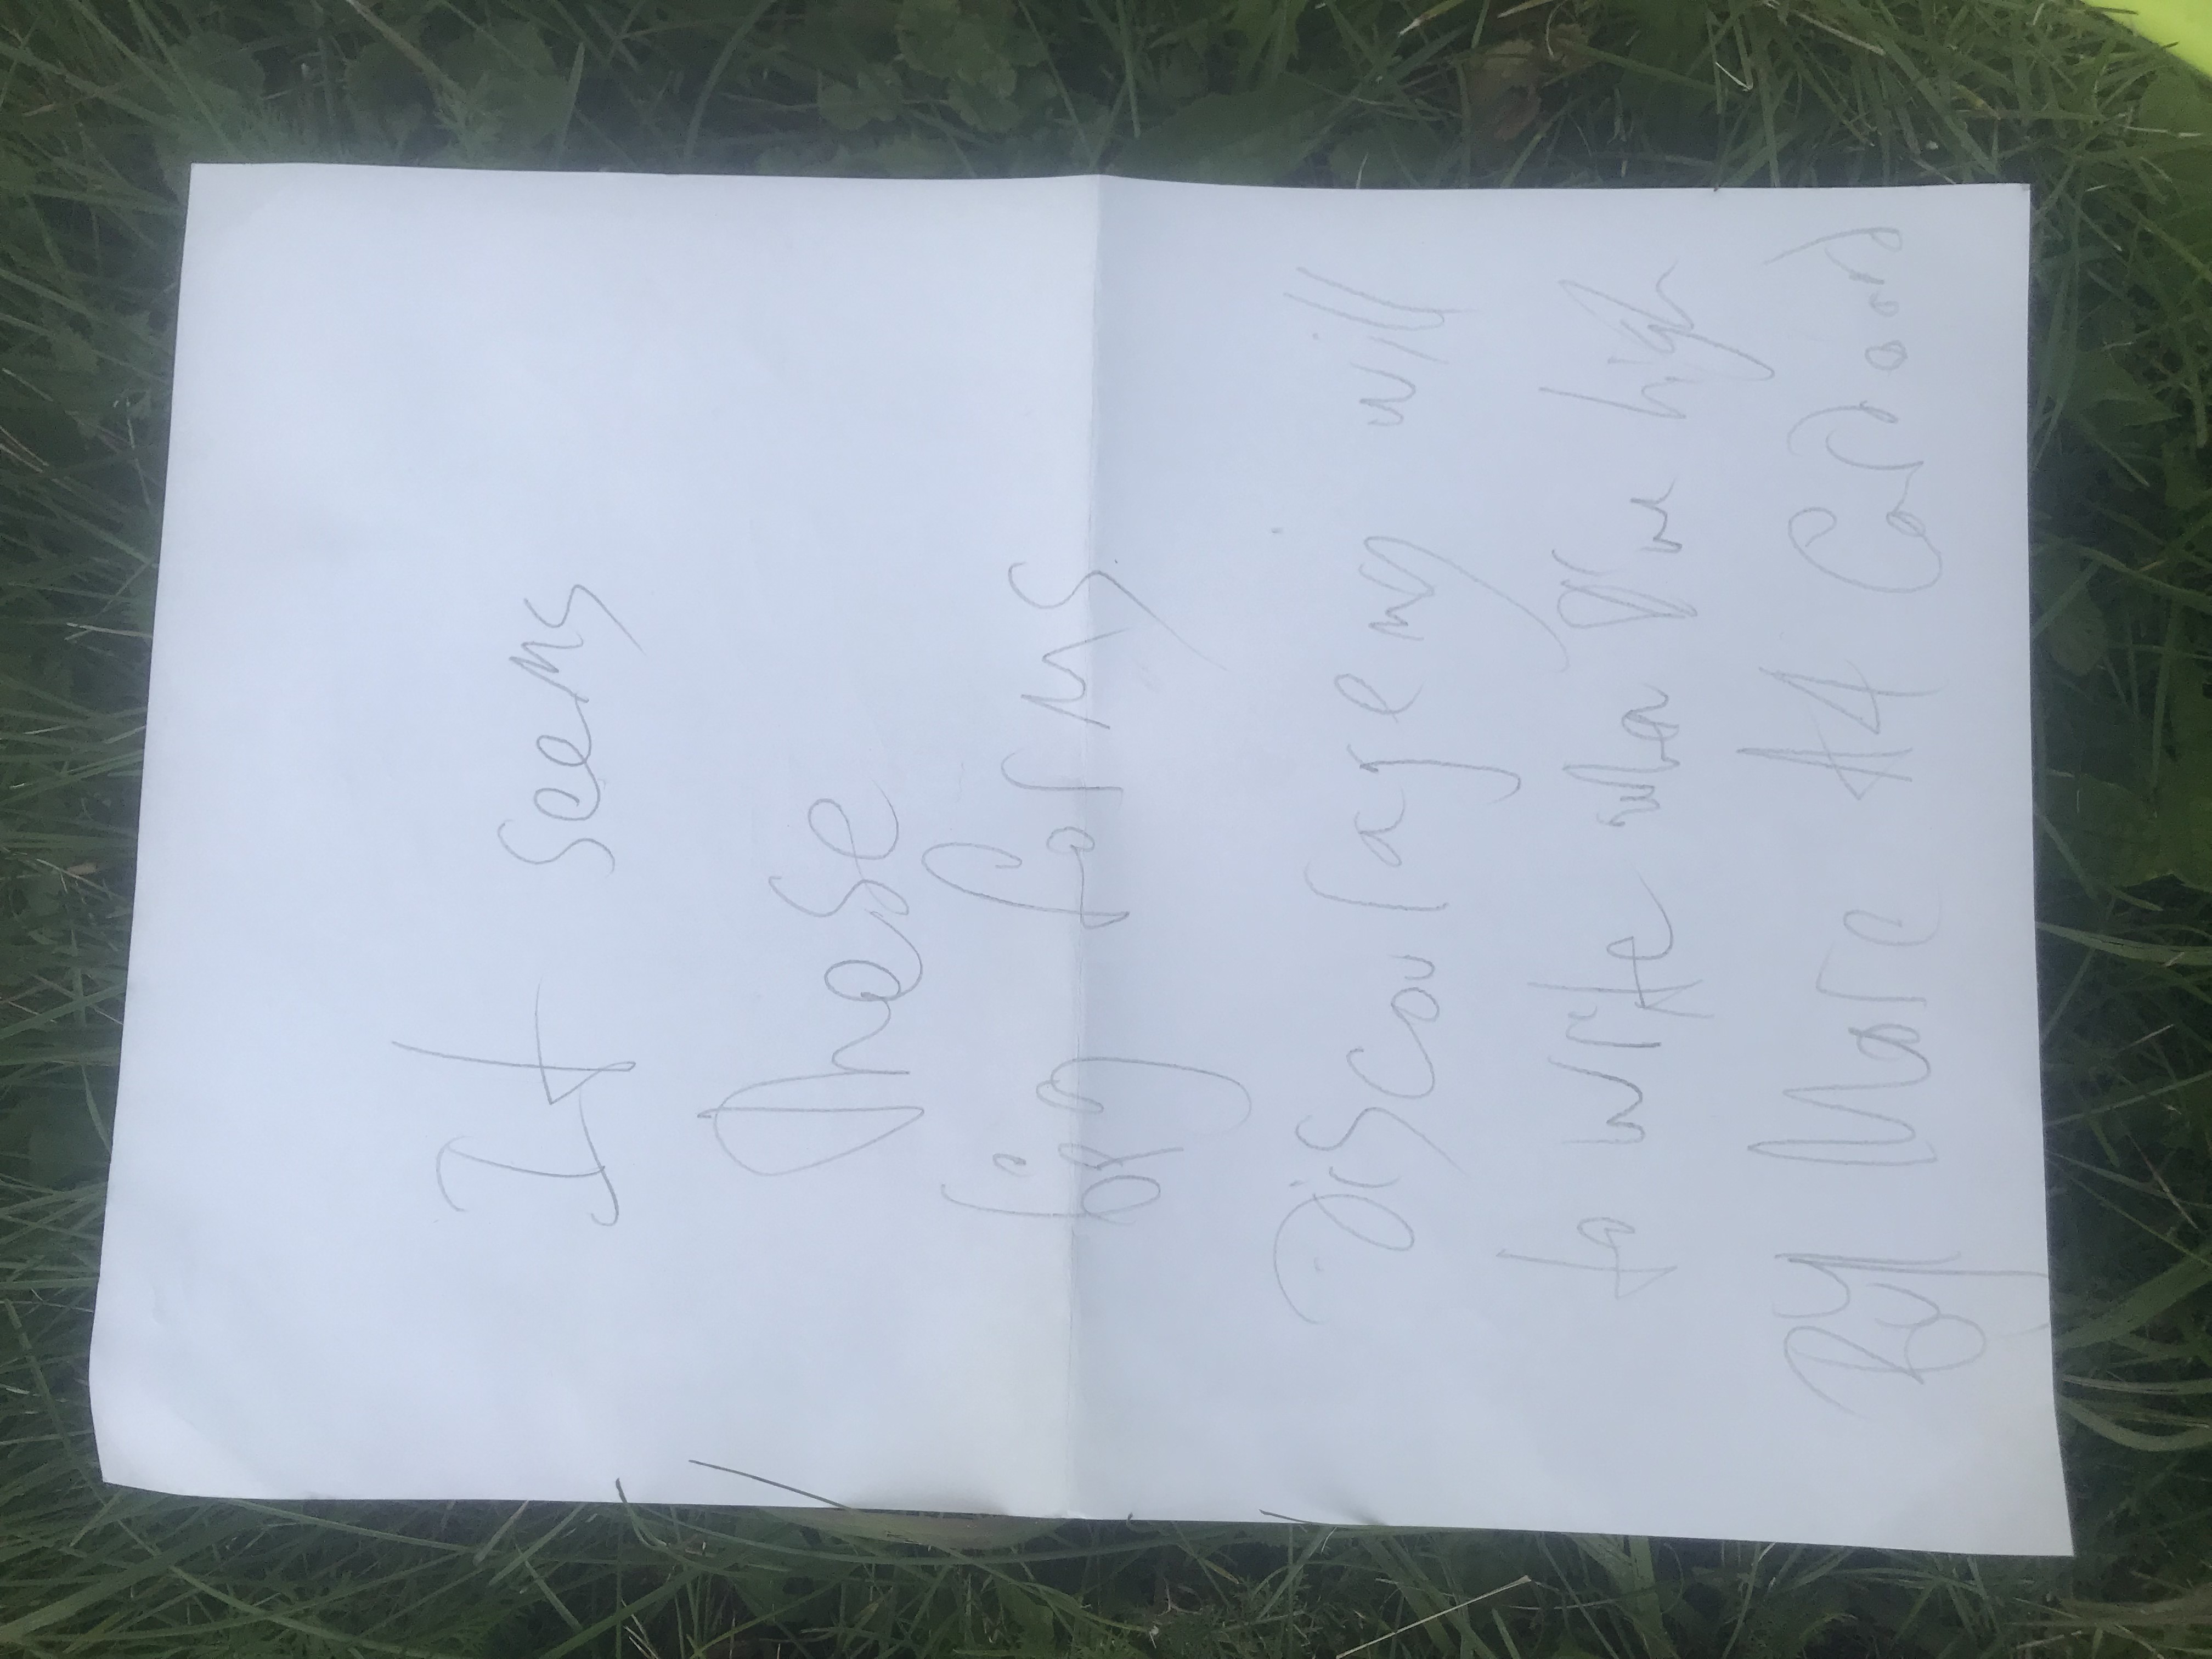 It seems
these
big forms
Discourageing will
to write when I'm high
Buy More A4 Cardoard